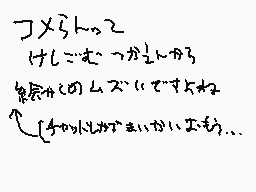 コメらんって
けしごむ つかえんから
絵かくのムズいですよね
(チャットしかでまいかいおもう...